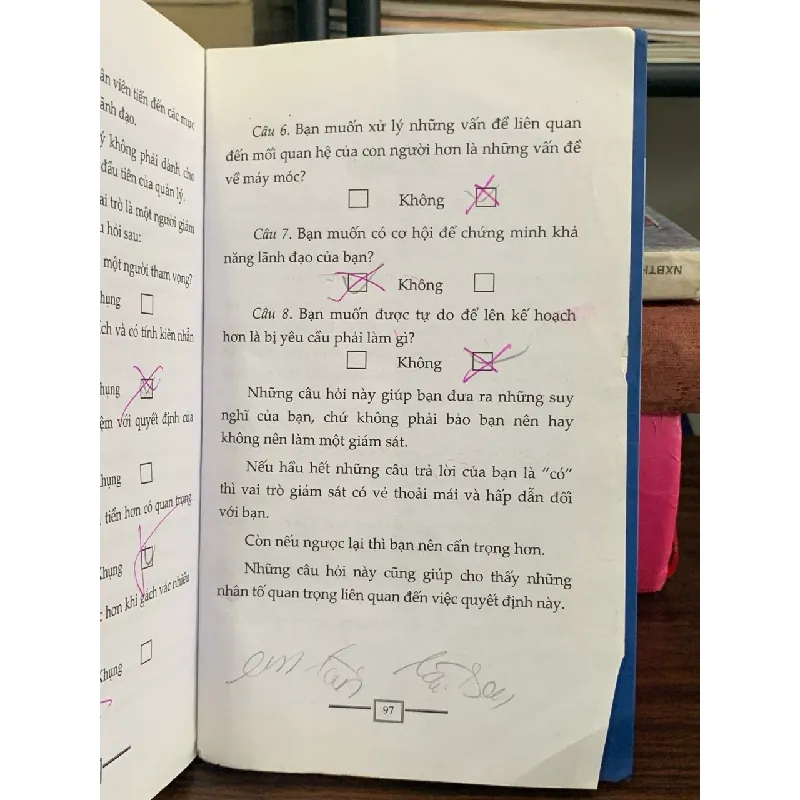 ân viên tiến đến các mục
ãnh đạo.
ý không phải dành cho
đầu tiên của quản lý.
ai trò là một người giám
u hỏi sau:
một người tham vọng?
hụng
ích và có tính kiên nhẫn
hụng
ệm với quyết định của
hụng
tiến hơn có quan trọng
Khụng
c hơn khi gách vác nhiều
Khụng
Câu 6. Bạn muốn xử lý những vấn đề liên quan
đến mối quan hệ của con người hơn là những vấn đề
về máy móc?
Không
Câu 7. Bạn muốn có cơ hội để chứng minh khả
năng lãnh đạo của bạn?
Không
Câu 8. Bạn muốn được tự do để lên kế hoạch
hơn là bị yêu cầu phải làm gì?
Không
Những câu hỏi này giúp bạn đưa ra những suy
nghĩ của bạn, chứ không phải bảo bạn nên hay
không nên làm một giám sát.
Nếu hầu hết những câu trả lời của bạn là "có"
thì vai trò giám sát có vẻ thoải mái và hấp dẫn đối
với bạn.
Còn nếu ngược lại thì bạn nên cẩn trọng hơn.
Những câu hỏi này cũng giúp cho thấy những
nhân tố quan trọng liên quan đến việc quyết định này.
97
NXBTH